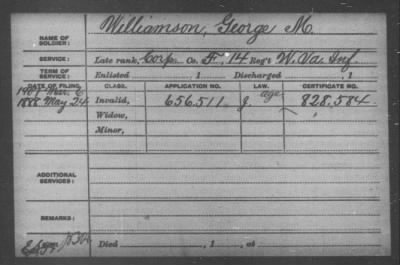 NAME OF SOLDIER: Williamson, George M.
SERVICE: Late rank, Corp. Co. F, 14 Reg't W. Va. Inf.
TERM OF SERVICE: Enlisted , 1 Discharged , 1
DATE OF FILING. CLASS. APPLICATION NO. LAW. CERTIFICATE NO.
1907 Mar. 6 age
1888 May 24 Invalid, 656.511 g. 828.584
Widow,
Minor,
ADDITIONAL SERVICES:
REMARKS:
Died , 1 , at